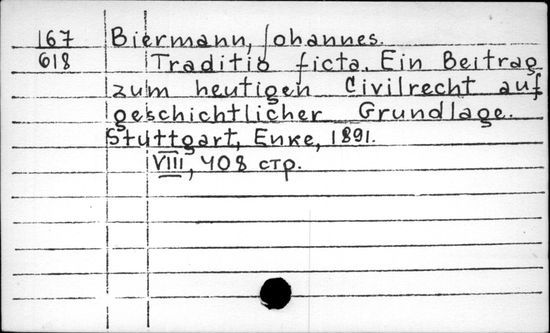 167 Biermann, Johannes.
618 Traditio ficta. Ein Beitrag
zum heutigen Civilrecht auf
geschichtlicher Grundlage.
Stuttgart, Enke, 1891.
VIII, 408 стр.